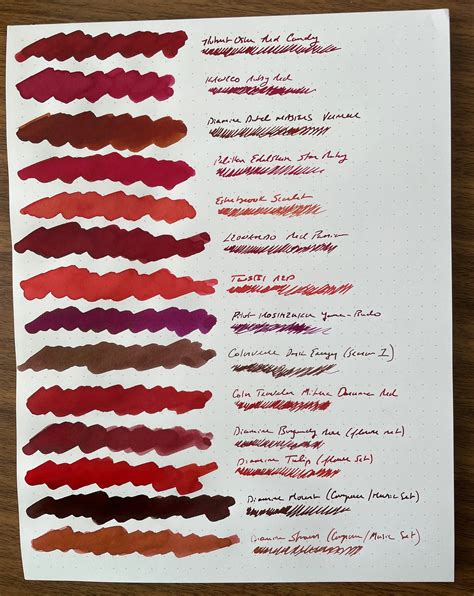 Robert Oster Red Candy
KAWECO Ruby Red
Diamine Dutch MASTERS Vermeer
Pelikan Edelstein Star Ruby
Esterbrook Scarlet
LEONARDO Red Passion
TWSBI RED
Pilot IROSHIZUKU Yama-Budo
Colorverse Dark Energy (Season 1)
Color Traveler Mihara Daruma Red
Diamine Burgundy Rose (flower set)
Diamine Tulip (flower Set)
Diamine Mozart (Composer/Music Set)
Diamine Strauss (Composer/Music Set)